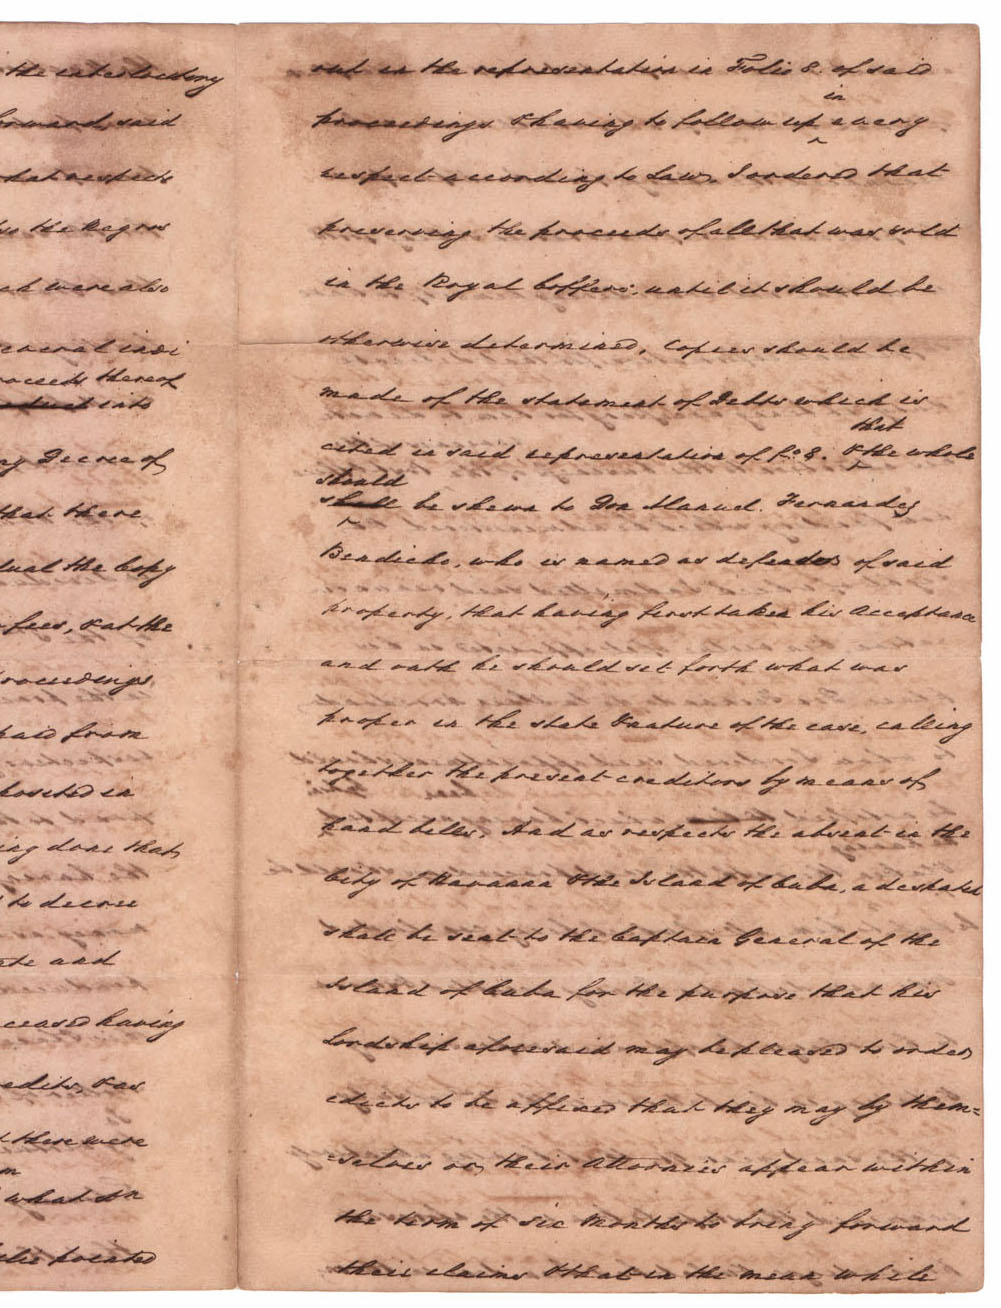 the interlocutory
forward, said
that respects
the Negros
were also
several indi
proceeds thereof
into
Decree of
that there
the Copy
fees, & at the
proceedings
paid from
posited in
ing done that
to decree
and
ceased having
edits, & as
there were
what in
pointed
out in the representation in Folio 8. of said
in
proceedings & having to follow up every
respect according to Law, I ordered that
preserving the proceeds of all that was sold
in the Royal Coffers, until it should be
otherwise determined, Copies should be
made of the statement of Debts which is
that
cited in said representation of fo. 8. & the whole
should
shall be shewn to Don Manuel Fernandez
Bendicho, who is named as defender of said
property, that having first taken his Acceptance
and oath he should set forth what was
proper in the state & nature of the case, calling
together the present creditors by means of
hand bills, And as respects the absent in the
City of Havanna & the Island of Cuba, a despatch
shall be sent to the Captain General of the
Island of Cuba for the purpose that his
Lordship aforesaid may be pleased to order
edicts to be affixed that they may by them=
selves or their Attornies appear within
the term of six Months to bring forward
their claims & that in the mean while